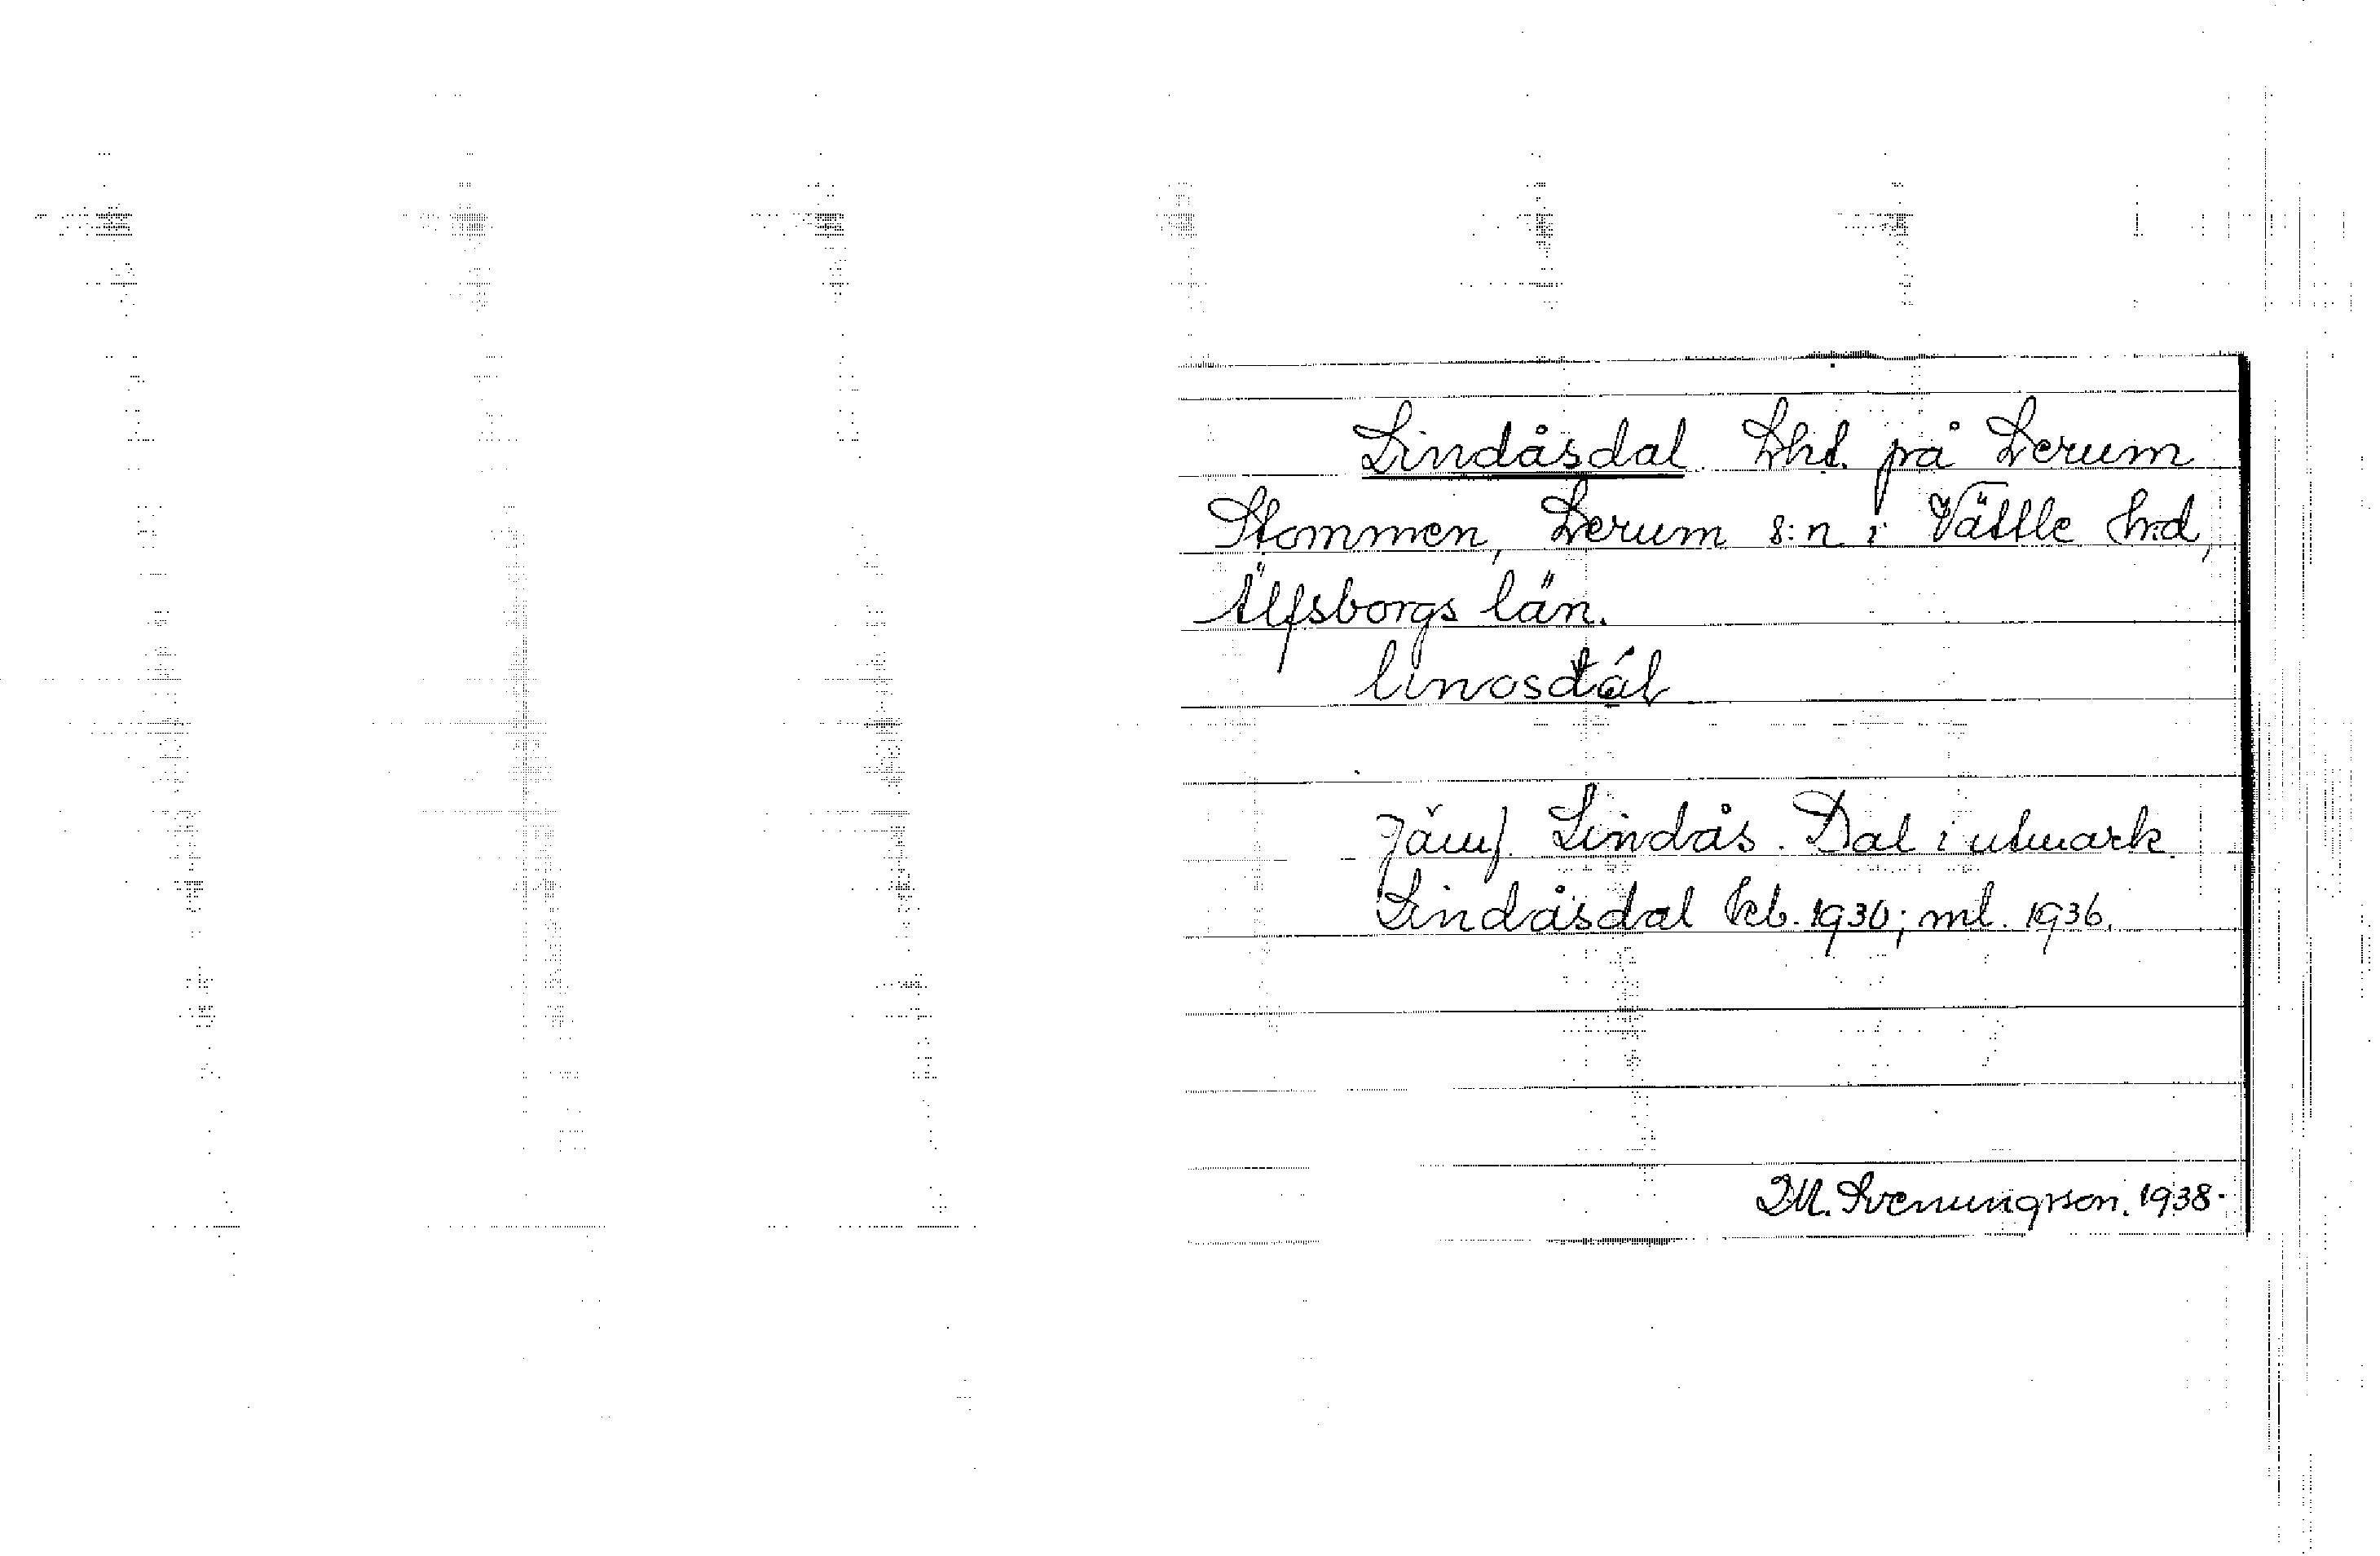 Lindåsdal. Lht. på Lerum
Stommen, Lerum s:n i Vättle hd,
Älfsborgs län.
linosdál
Jämf. Lindås. Dal i utmark.
Lindåsdal kb. 1930; ml. 1936.
I.M. Svenungsson. 1938.